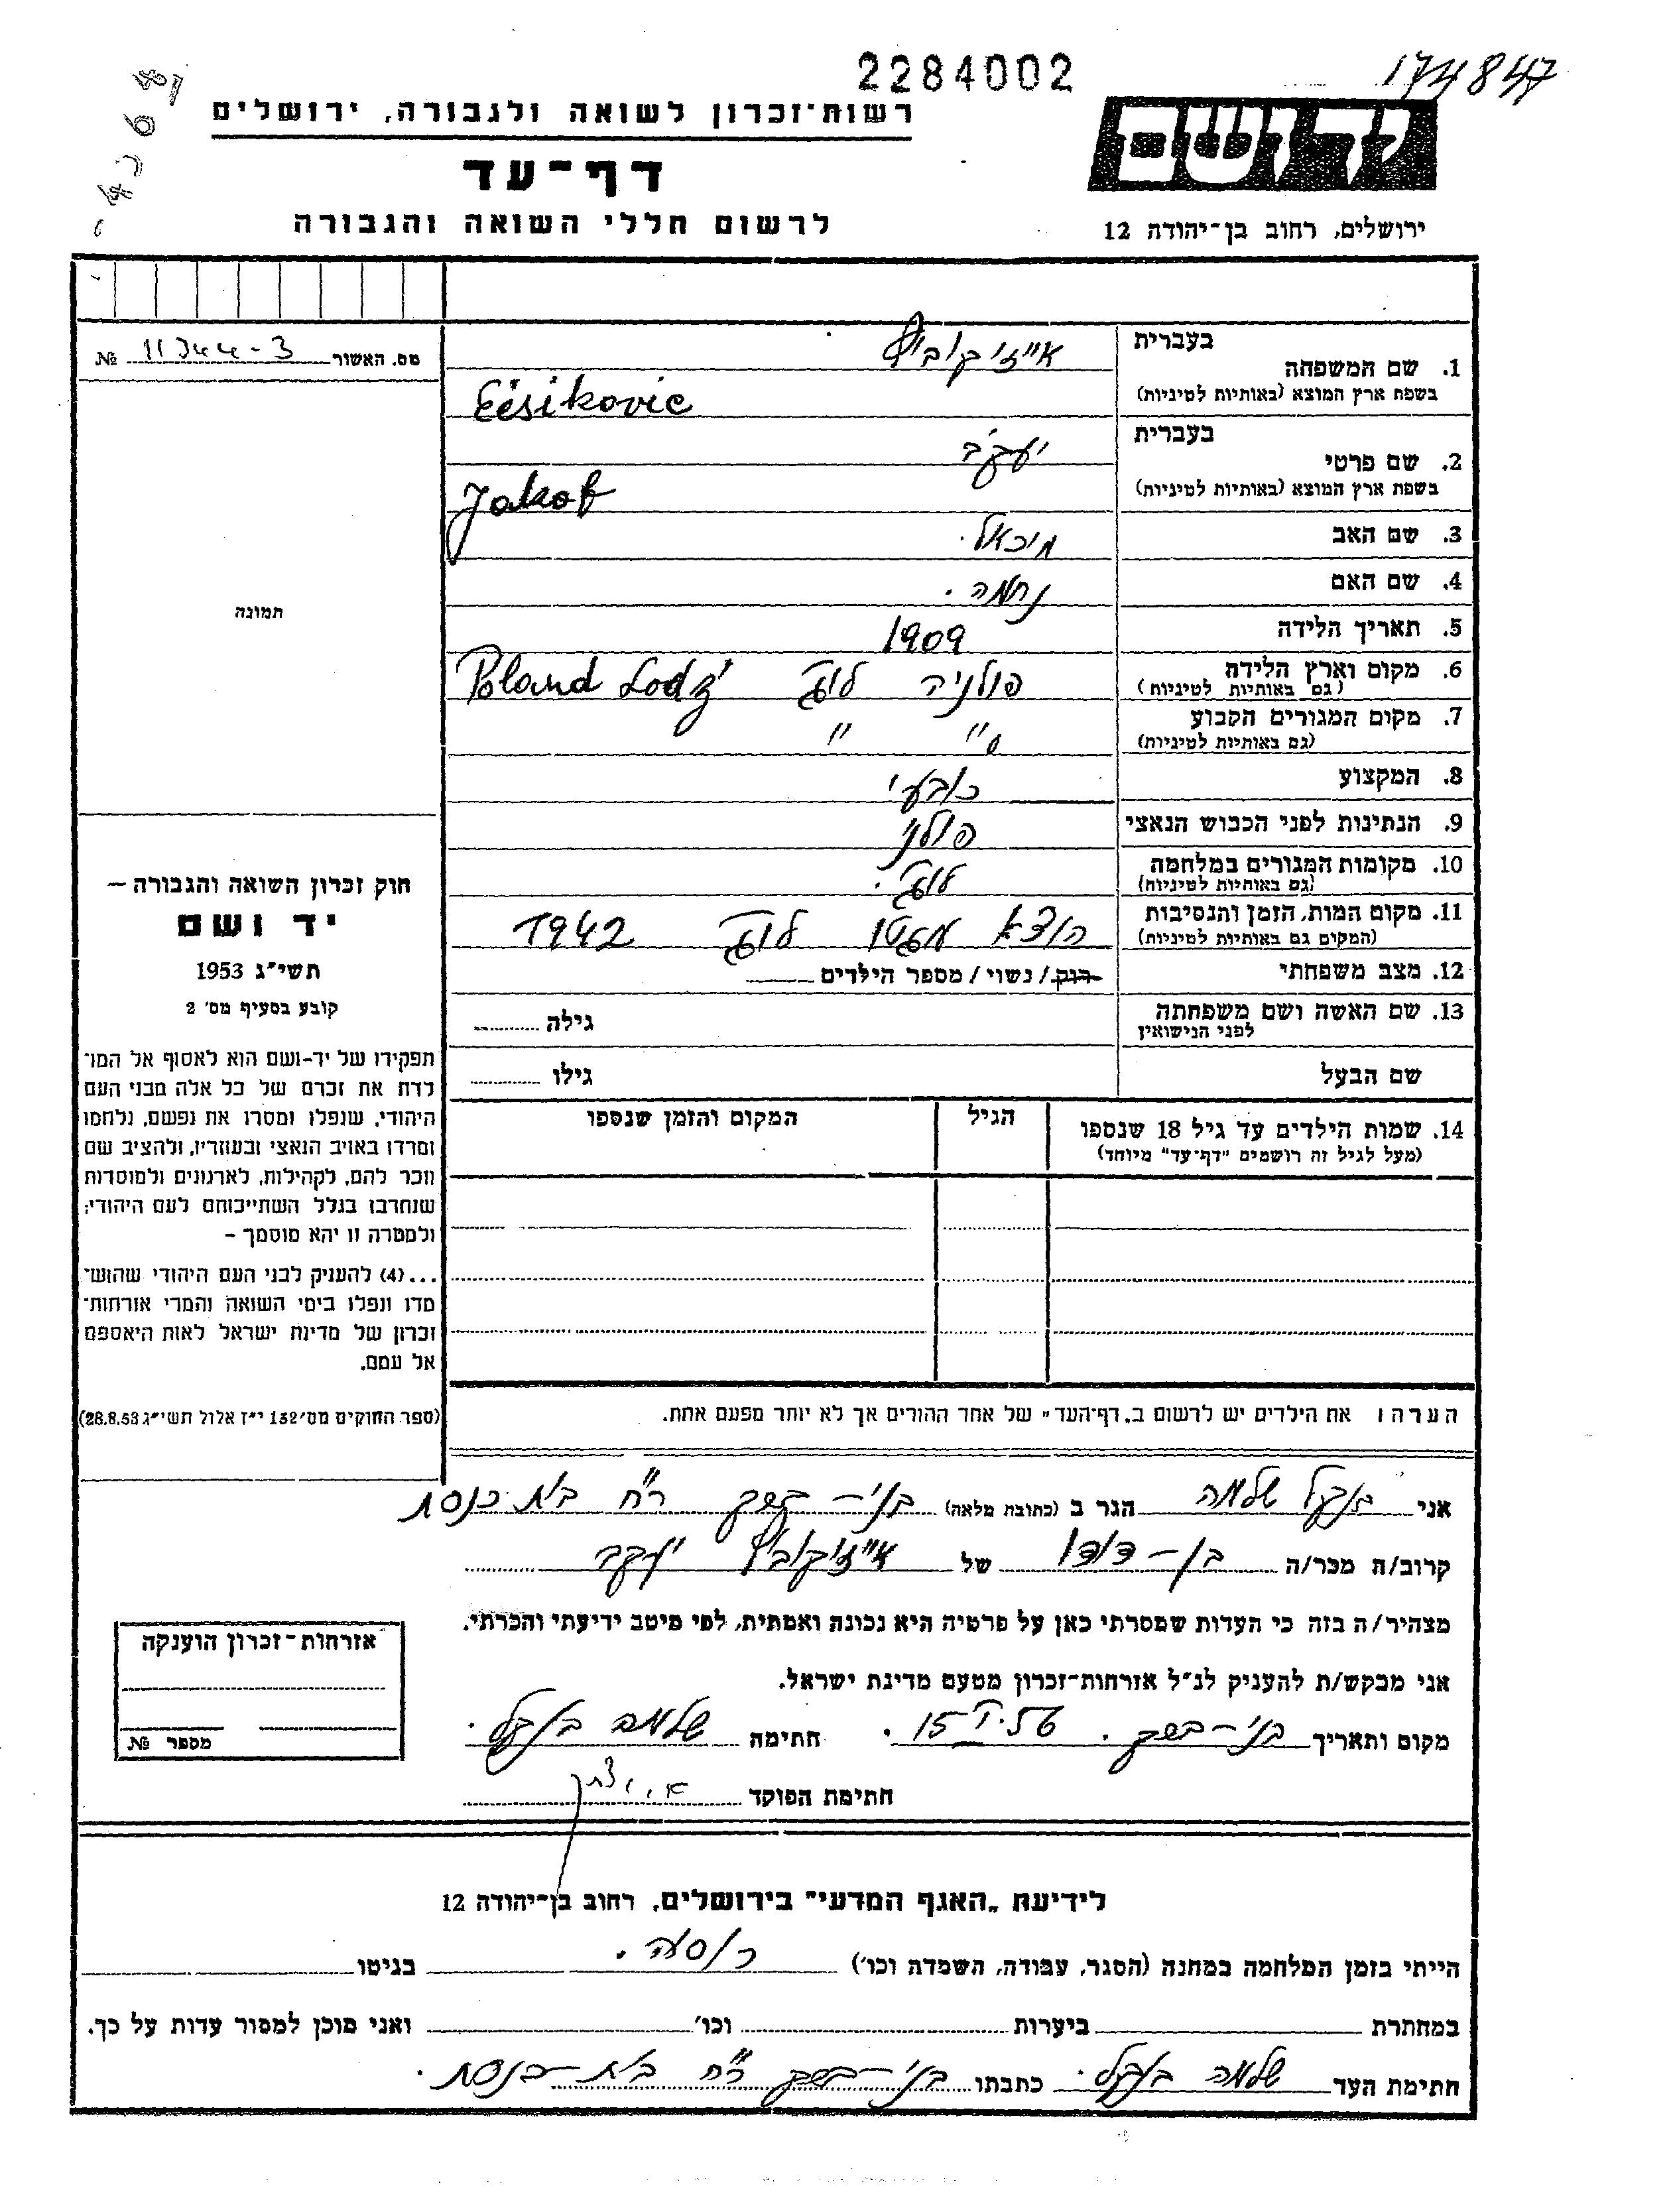 2284002
174847
רשות־זכרון לשואה ולגבורה, ירושלים
יד ושם
דף־עד
לרשום חללי השואה והגבורה
ירושלים, רחוב בן־יהודה 12
מס. האשור 11344-3 №
תמונה
חוק זכרון השואה והגבורה —
יד ושם
תשי"ג 1953
קובע בסעיף מס׳ 2
תפקידו של יד-ושם הוא לאסוף אל המו־
לדת את זכרם של כל אלה מבני העם
היהודי, שנפלו ומסרו את נפשם, נלחמו
ומרדו באויב הנאצי ובעוזריו, ולהציב שם
וזכר להם, לקהילות, לארגונים ולמוסדות
שנחרבו בגלל השתייכותם לעם היהודי;
ולמטרה זו יהא מוסמך –
...(4) להעניק לבני העם היהודי שהוש־
מדו ונפלו בימי השואה והמרי אזרחות־
זכרון של מדינת ישראל לאות היאספם
אל עמם.
(ספר החוקים מס׳ 132 י"ז אלול תשי"ג 28.8.53)
בעברית אייזיקוביץ
1. שם המשפחה
בשפת ארץ המוצא (באותיות לטיניות) Eisikovic
בעברית יעקב
2. שם פרטי
בשפת ארץ המוצא (באותיות לטיניות) Jakob
3. שם האב מיכאל.
4. שם האם נחמה.
5. תאריך הלידה 1909
6. מקום וארץ הלידה פולניה לודג׳ Poland Lodz
(גם באותיות לטיניות)
7. מקום המגורים הקבוע " "
(גם באותיות לטיניות)
8. המקצוע כובעי
9. הנתינות לפני הכבוש הנאצי פולני
10. מקומות המגורים במלחמה לודג׳.
(גם באותיות לטיניות)
11. מקום המות, הזמן והנסיבות הוצא מגטו לודג׳ 1942
(המקום גם באותיות לטיניות)
12. מצב משפחתי רוק / נשוי / מספר הילדים
13. שם האשה ושם משפחתה גילה
לפני הנישואין
שם הבעל גילו
14. שמות הילדים עד גיל 18 שנספו הגיל המקום והזמן שנספו
(מעל לגיל זה רושמים "דף־עד" מיוחד)
הערה: את הילדים יש לרשום ב"דף־העד" של אחד ההורים אך לא יותר מפעם אחת.
אני שלמה הגר ב (כתובת מלאה) בני-ברק רח׳ בית כנסת
קרוב/ה מכר/ה בן-דודו של אייזיקוביץ יעקב
מצהיר/ה בזה כי העדות שמסרתי כאן על פרטיה היא נכונה ואמתית, לפי מיטב ידיעתי והכרתי.
אני מבקש/ת להעניק לנ"ל אזרחות־זכרון מטעם מדינת ישראל.
מקום ותאריך בני-ברק. 56 15. חתימה שלמה
חתימת הפוקד
אזרחות־זכרון הוענקה
מספר №
לידיעת "האגף המדעי" בירושלים, רחוב בן־יהודה 12
הייתי בזמן המלחמה במחנה (הסגר, עבודה, השמדה וכו׳) רוסיה. בגיטו
במחתרת ביערות וכו׳ ואני מוכן למסור עדות על כך.
חתימת העד שלמה כתבתו בני-ברק רח׳ בית-כנסת.